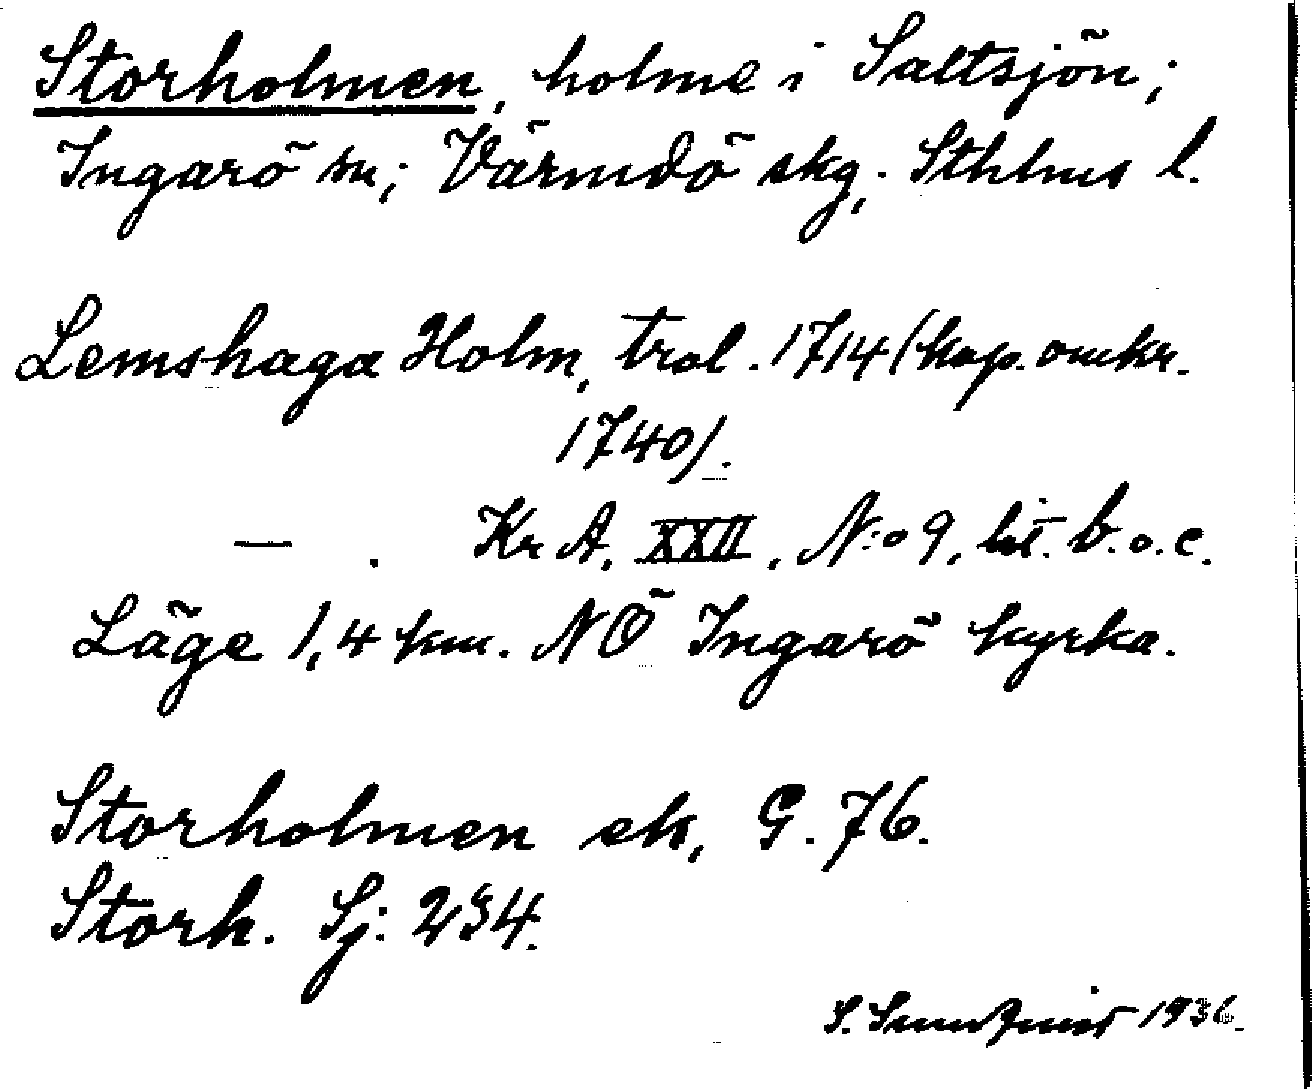 Storholmen, holme i Saltsjön;
Ingarö sn; Värmdö skg. Sthlms l.
Lemshaga Holm, trol. 1714 (kop. omkr.
1740).
— . Kr A, XXII, N:o 9, lit. b. o. c.
Läge 1,4 km. NÖ Ingarö kyrka.
Storholmen ek, G. 76.
Storh. Sj: 234.
S. Sundquist 1936.